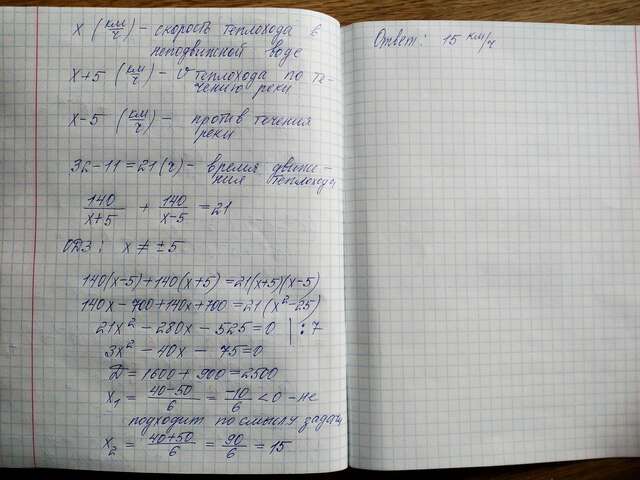 x (км/ч) – скорость теплохода в
неподвижной воде
x+5 (км/ч) – V теплохода по те-
чению реки
x-5 (км/ч) – против течения
реки
32-11=21(ч) – время движе-
ния теплохода
140/(x+5) + 140/(x-5) = 21
ОДЗ: x ≠ ±5
140(x-5)+140(x+5)=21(x+5)(x-5)
140x-700+140x+700=21(x²-25)
21x²-280x-525=0 |:7
3x²-40x-75=0
D=1600+900=2500
x₁ = (40-50)/6 = -10/6 <0 – не
подходит по смыслу задачи
x₂ = (40+50)/6 = 90/6 = 15
Ответ: 15 км/ч